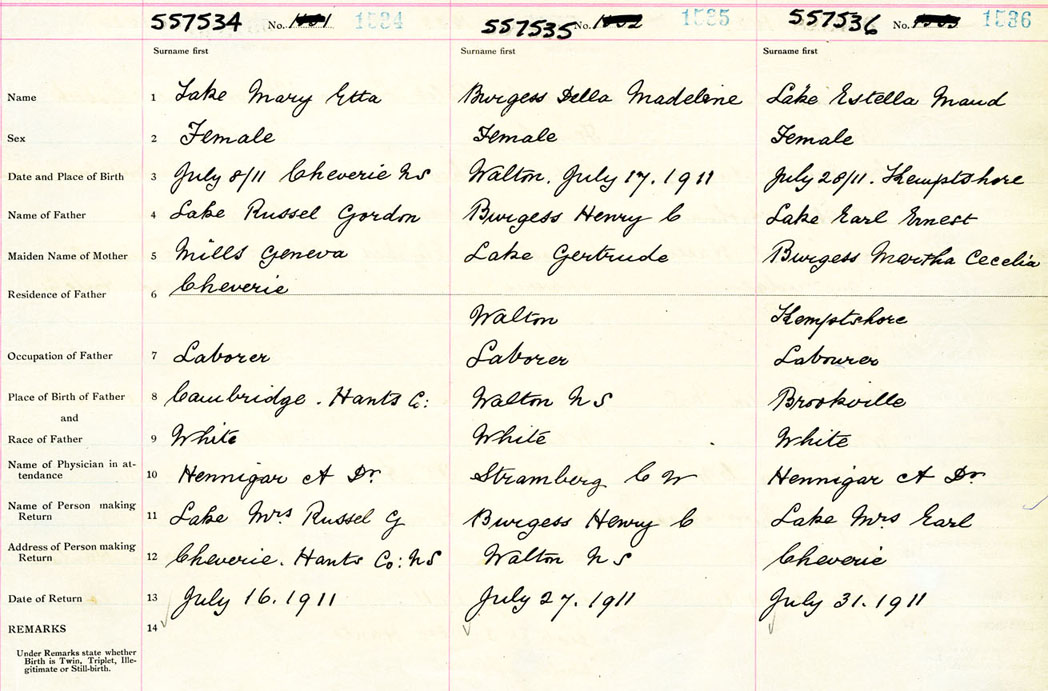 557534 No. 1534 557535 No. 1535 557536 No. 1536
Surname first Surname first Surname first
Name 1 Lake Mary Etta Burgess Della Madeline Lake Estella Maud
Sex 2 Female Female Female
Date and Place of Birth 3 July 8/11 Cheverie NS Walton. July 17. 1911 July 28/11. Kemptshore
Name of Father 4 Lake Russel Gordon Burgess Henry C Lake Earl Ernest
Maiden Name of Mother 5 Mills Geneva Lake Gertrude Burgess Martha Cecelia
Residence of Father 6 Cheverie
Walton Kemptshore
Occupation of Father 7 Laborer Laborer Labourer
Place of Birth of Father 8 Cambridge. Hants Co: Walton NS Brookville
and
Race of Father 9 White White White
Name of Physician in at-
tendance 10 Hennigar A Dr Stramberg C W Hennigar A Dr
Name of Person making
Return 11 Lake Mrs Russel G Burgess Henry C Lake Mrs Earl
Address of Person making
Return 12 Cheverie. Hants Co: NS Walton NS Cheverie
Date of Return 13 July 16. 1911 July 27. 1911 July 31. 1911
REMARKS 14
Under Remarks state whether
Birth is Twin, Triplet, Ille-
gitimate or Still-birth.